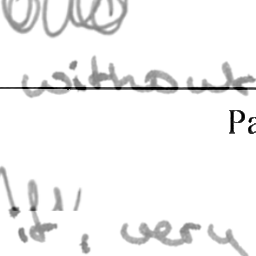 without
Pa
it", very